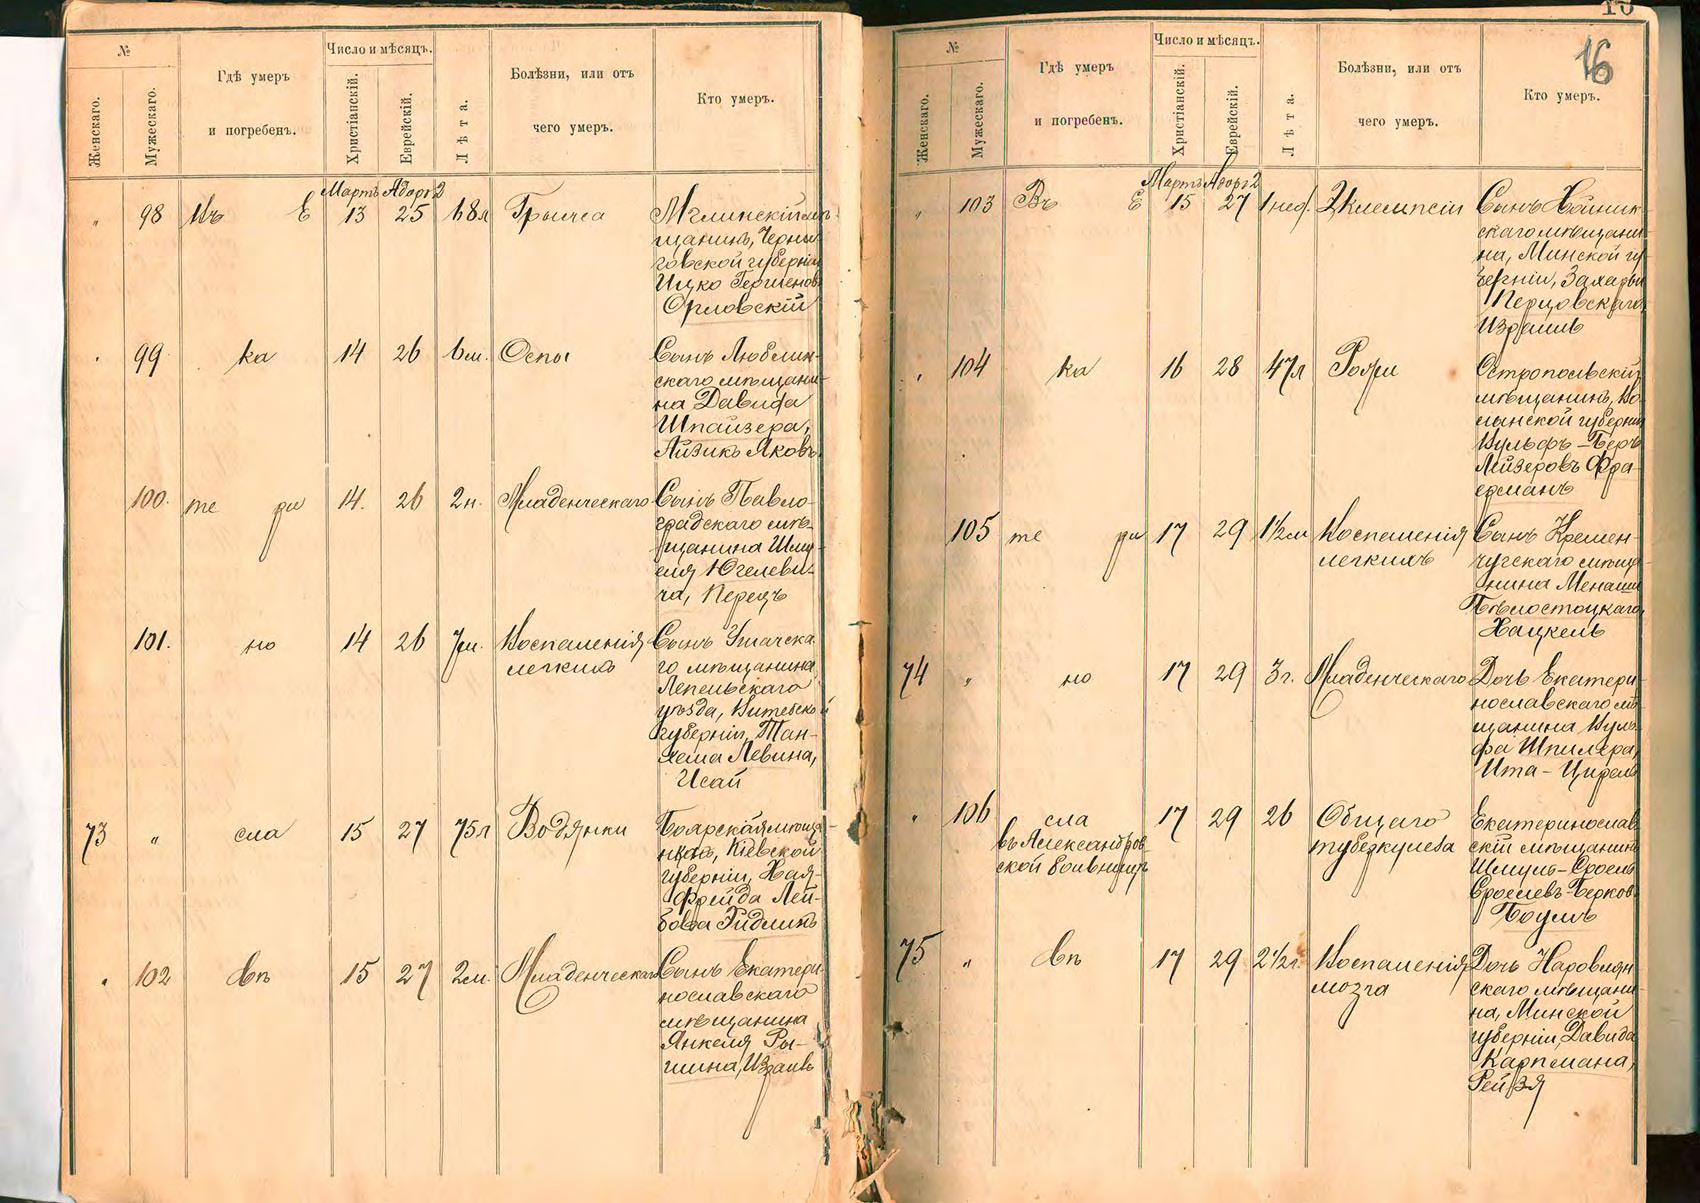 №
Женскаго.
Мужескаго.
Гдѣ умеръ
и погребенъ.
Число и мѣсяцъ.
Христіанскій.
Еврейскій.
Лѣта.
Болѣзни, или отъ
чего умеръ.
Кто умеръ.
Мартъ Адаръ 2
" 98 Въ Е 13 25 68л Грыжа Мглинскій мѣ-
щанинъ, Черни-
говской губерніи
Ицко Гершеновъ
Орловскій
99 ка 14 26 6м. Оспы Сынъ Люблин-
скаго мѣщани-
на Давида
Шпайзера,
Айзикъ Яковъ
100. те ри 14. 26 2н. Младенческаго Сынъ Павло-
градскаго мѣ-
щанина Шму-
еля Югелеви-
ча, Перецъ
101. но 14 26 7м. Воспаленія Сынъ Ушачска-
легкихъ го мѣщанина
Лепельскаго
уѣзда, Витебской
губерніи, Тан-
хема Левина,
Исай
73 " сла 15 27 75л Водянки Боярская мѣща-
нка, Кіевской
губерніи, Хая-
Фрейда Лей-
бова Ридликъ
102 въ 15 27 2м. Младенческаго Сынъ Екатери-
нославскаго
мѣщанина
Янкеля Ры-
шина, Израиль
16
№
Женскаго.
Мужескаго.
Гдѣ умеръ
и погребенъ.
Число и мѣсяцъ.
Христіанскій.
Еврейскій.
Лѣта.
Болѣзни, или отъ
чего умеръ.
Кто умеръ.
Мартъ Адаръ 2
" 103 Въ Е 15 27 1нед. Эклемпсіи Сынъ Хойник-
скаго мѣщани-
на, Минской гу-
берніи, Захарьи
Перцовскаго,
Израиль
104 ка 16 28 47л Рожи Остропольскій
мѣщанинъ, Во-
лынской губерніи
Вульфъ-Беръ
Лейзеровъ Фра-
ерманъ
105 те ри 17 29 1½м Воспаленія Сынъ Кремен-
легкихъ чугскаго мѣща-
нина Менаши
Бѣлостоцкаго,
Хацкель
74 " но 17 29 3г. Младенческаго Дочь Екатери-
нославскаго мѣ-
щанина Вуль-
фа Шпилера,
Ита-Цирель
" 106 сла 17 29 26 Общаго Екатеринослав-
въ Александров- туберкулеза скій мѣщанинъ
ской больницѣ Шмуль-Сроель
Сроелевъ-Берковъ
Боумъ
75 " въ 17 29 2½г. Воспаленія Дочь Наровлян-
мозга скаго мѣщани-
на, Минской
губерніи, Давида
Карпмана,
Рейзя